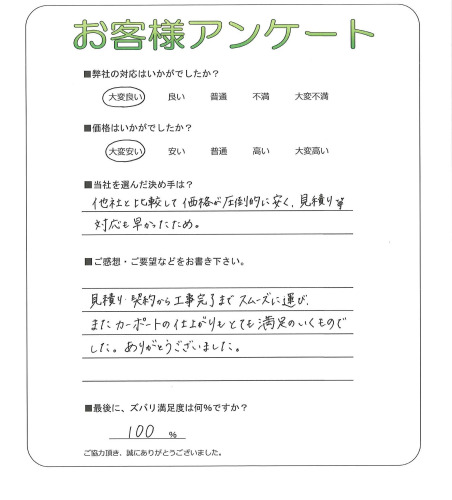 お客様アンケート
■弊社の対応はいかがでしたか？
大変良い 良い 普通 不満 大変不満
■価格はいかがでしたか？
大変安い 安い 普通 高い 大変高い
■当社を選んだ決め手は？
他社と比較して価格が圧倒的に安く、見積り等
対応も早かったため。
■ご感想・ご要望などをお書き下さい。
見積り・契約から工事完了までスムーズに運び、
またカーポートの仕上がりもとても満足のいくもので
した。ありがとうございました。
■最後に、ズバリ満足度は何％ですか？
100 ％
ご協力頂き、誠にありがとうございました。